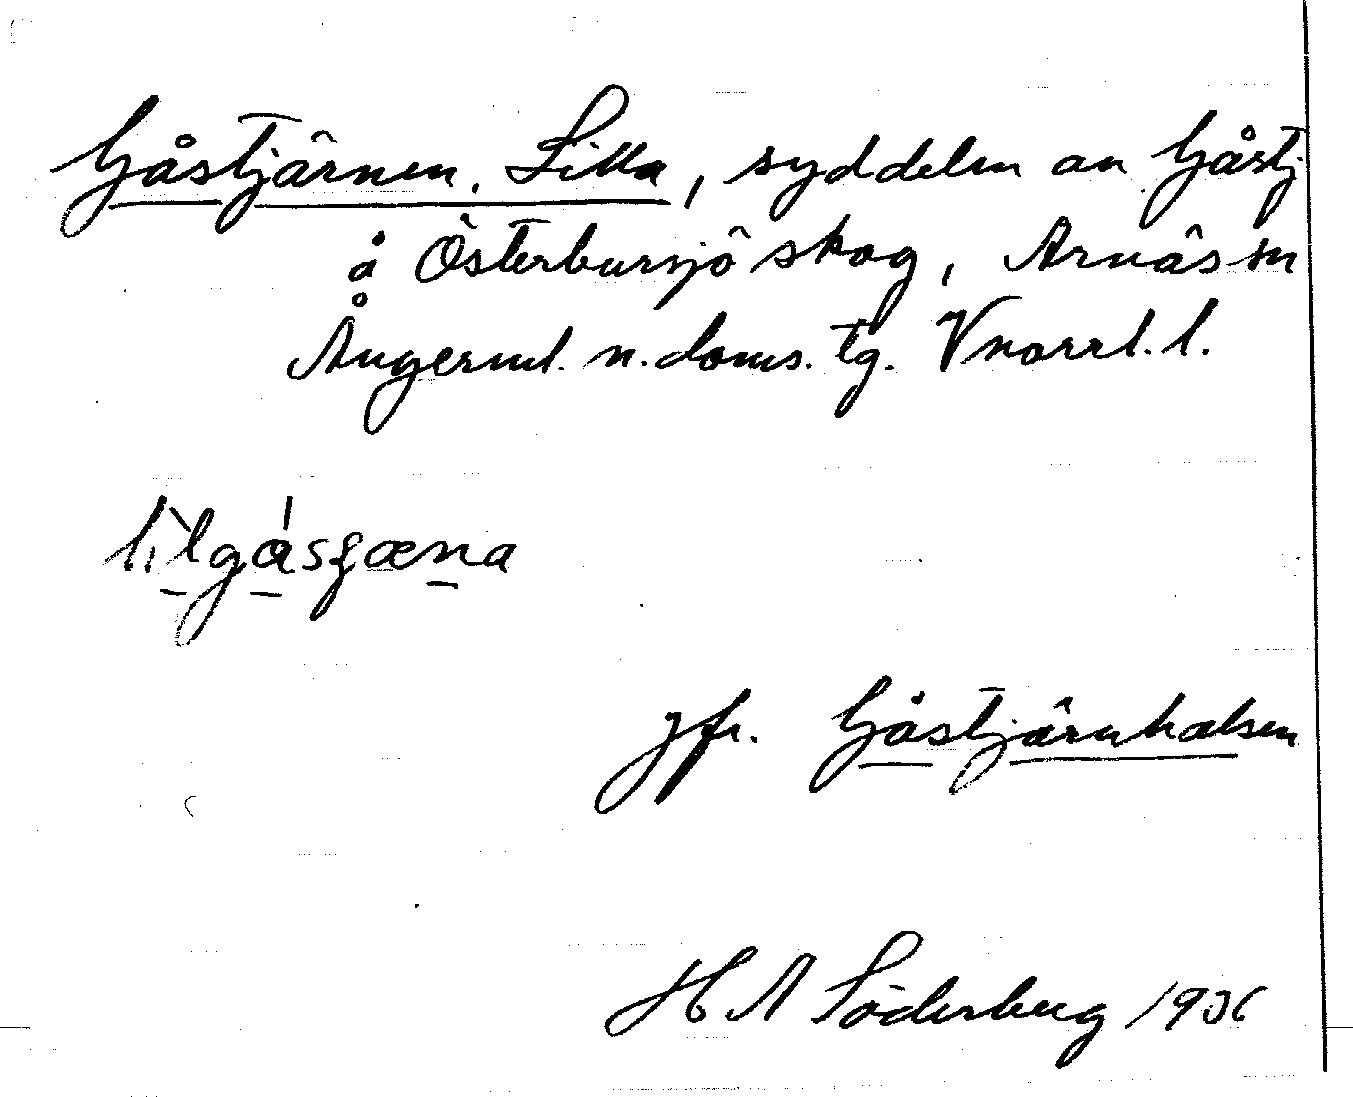 Gåstjärnen, Lilla, syddelen av Gåstj
å Österbursjö skog, Arnäs sn
Ångerml. n. doms. tg. Vnorrl. l.
jfr. Gåstjärnhalsen
H A Söderberg 1936